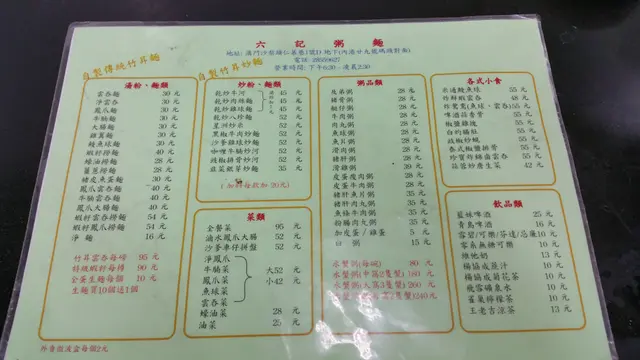 六記粥麵
地址: 澳門沙梨頭仁慕巷1號D 地下(內港廿九號碼頭對面)
電話: 28559627
營業時間: 下午6:30 - 凌晨2:30
自製傳統竹昇麵
湯粉、麵類
雲吞麵 30 元
淨雲吞 30 元
鳳爪麵 30 元
牛腩麵 30 元
大腸麵 30 元
雜菜麵 30 元
鯪魚球麵 30 元
蝦籽撈麵 40 元
蠔油撈麵 28 元
薑葱撈麵 28 元
豬皮魚蛋麵 30 元
鳳爪雲吞麵 40 元
牛腩雲吞麵 40 元
蝦籽雲吞撈麵 54 元
蝦籽鳳爪撈麵 54 元
淨麵 16 元
竹昇雲吞每磅 95 元
特級蝦籽每磅 90 元
全蛋生麵每磅 10 元
生麵買10個送1個
外賣飯盒每個2元
自製竹昇炒麵
炒粉、麵類
乾炒牛河 45 元
乾炒肉絲麵 45 元
乾炒雞球麵 45 元
乾炒八珍麵 52 元
星洲炒米 52 元
黑椒牛肉炒麵 52 元
沙爹雞球炒麵 52 元
咖喱牛腩炒河 52 元
豉椒排骨炒河 52 元
韮菜銀芽炒麵 35 元
(加料每款加 20元)
菜類
金勢菜 95 元
滷水鳳爪大腸 52 元
沙爹車仔拼盤 52 元
淨鳳爪
牛腩菜 大52 元
鳳爪菜 小42 元
魚球菜
雲吞菜
蠔油菜 28 元
油菜 25 元
粥品類
及弟粥 28 元
豬骨粥 28 元
艇仔粥 28 元
牛肉粥 28 元
魚球粥 28 元
魚片粥 28 元
滑肉粥 28 元
豬肝粥 28 元
滑雞粥 28 元
皮蛋瘦肉粥 28 元
皮蛋魚球粥 28 元
豬肝肉丸粥 28 元
豬肝牛肉粥 28 元
魚條牛肉粥 28 元
粉腸肉丸粥 28 元
加皮蛋/雞蛋 5 元
白粥 15 元
水蟹粥(每碗) 80 元
水蟹粥(中窩2隻蟹) 180元
水蟹粥(大窩3隻蟹) 260元
各式小食
米通鯪魚球 55 元
炸鮮蝦雲吞 48 元
炸鴛鴦(魚球、雲吞) 55元
啤酒茄香骨 55 元
椒鹽雞塊 55 元
白灼豬肚 55 元
豉椒炒蜆 55 元
各式椒鹽排骨 55 元
珍寶炸鍋滷雲吞 55 元
蒜蓉炒唐生菜 42 元
飲品類
藍妹啤酒 25 元
青島啤酒 16 元
雲碧/可樂/芬達/忌廉 10元
零系無糖可樂 10 元
維他奶 13 元
楊協成菠汁 10 元
楊協成菊花茶 10 元
飛雲礦泉水 10 元
雀巢檸檬茶 10 元
王老吉涼茶 13 元